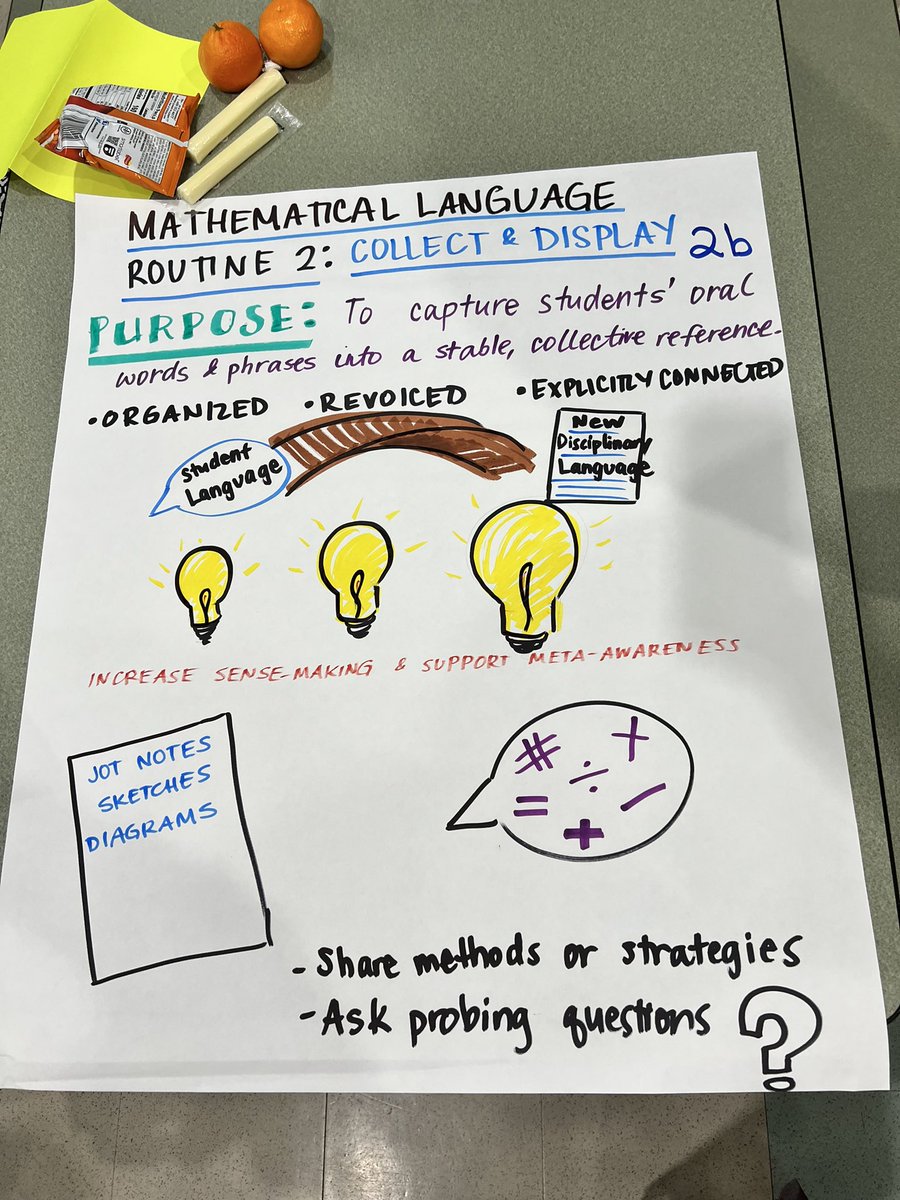 MATHEMATICAL LANGUAGE
ROUTINE 2: COLLECT & DISPLAY 2b
PURPOSE: To capture students' oral
words & phrases into a stable, collective reference.
• ORGANIZED • REVOICED • EXPLICITLY CONNECTED
Student
Language
New
Disciplinary
Language
INCREASE SENSE-MAKING & SUPPORT META-AWARENESS
JOT NOTES
SKETCHES
DIAGRAMS
# + ÷ = − +
- Share methods or strategies
- Ask probing questions ?